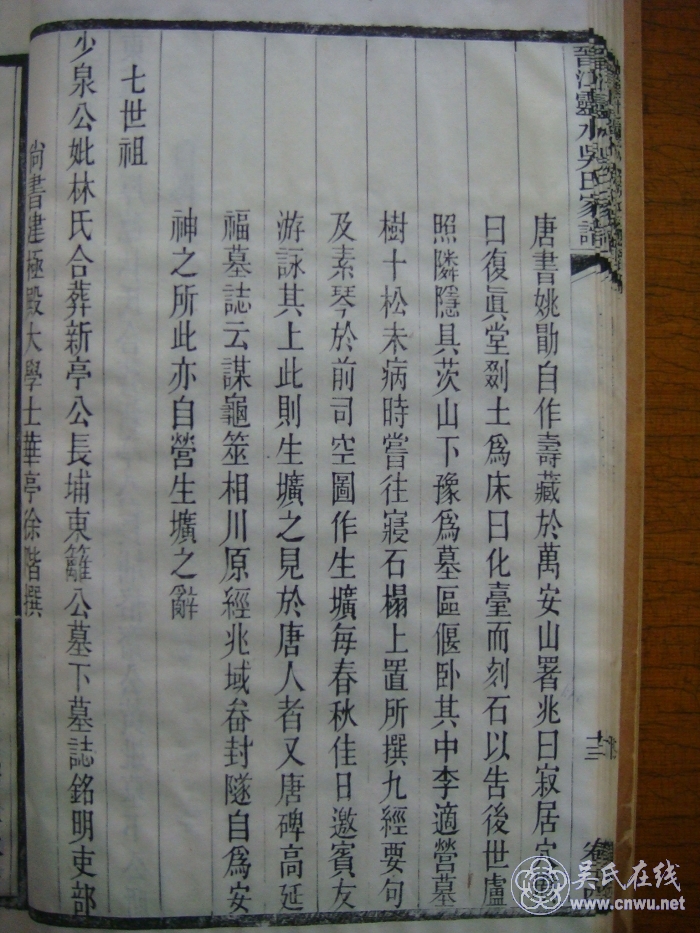 晉江靈水吳氏家譜
唐書姚勖自作壽藏於萬安山署兆曰寂居穴
曰復眞堂剟土爲床曰化臺而刻石以告後世盧
照隣隱具茨山下豫爲墓區偃卧其中李適營墓
樹十松未病時嘗往寢石榻上置所撰九經要句
及素琴於前司空圖作生壙每春秋佳日邀賓友
游詠其上此則生壙之見於唐人者又唐碑高延
福墓誌云謀龜筮相川原經兆域畚封隧自爲安
神之所此亦自營生壙之辭
七世祖
少泉公妣林氏合葬新亭公長埔東籬公墓下墓誌銘明吏部
尙書建極殿大學士華亭徐階撰
十三
吳氏在线
www.cnwu.net